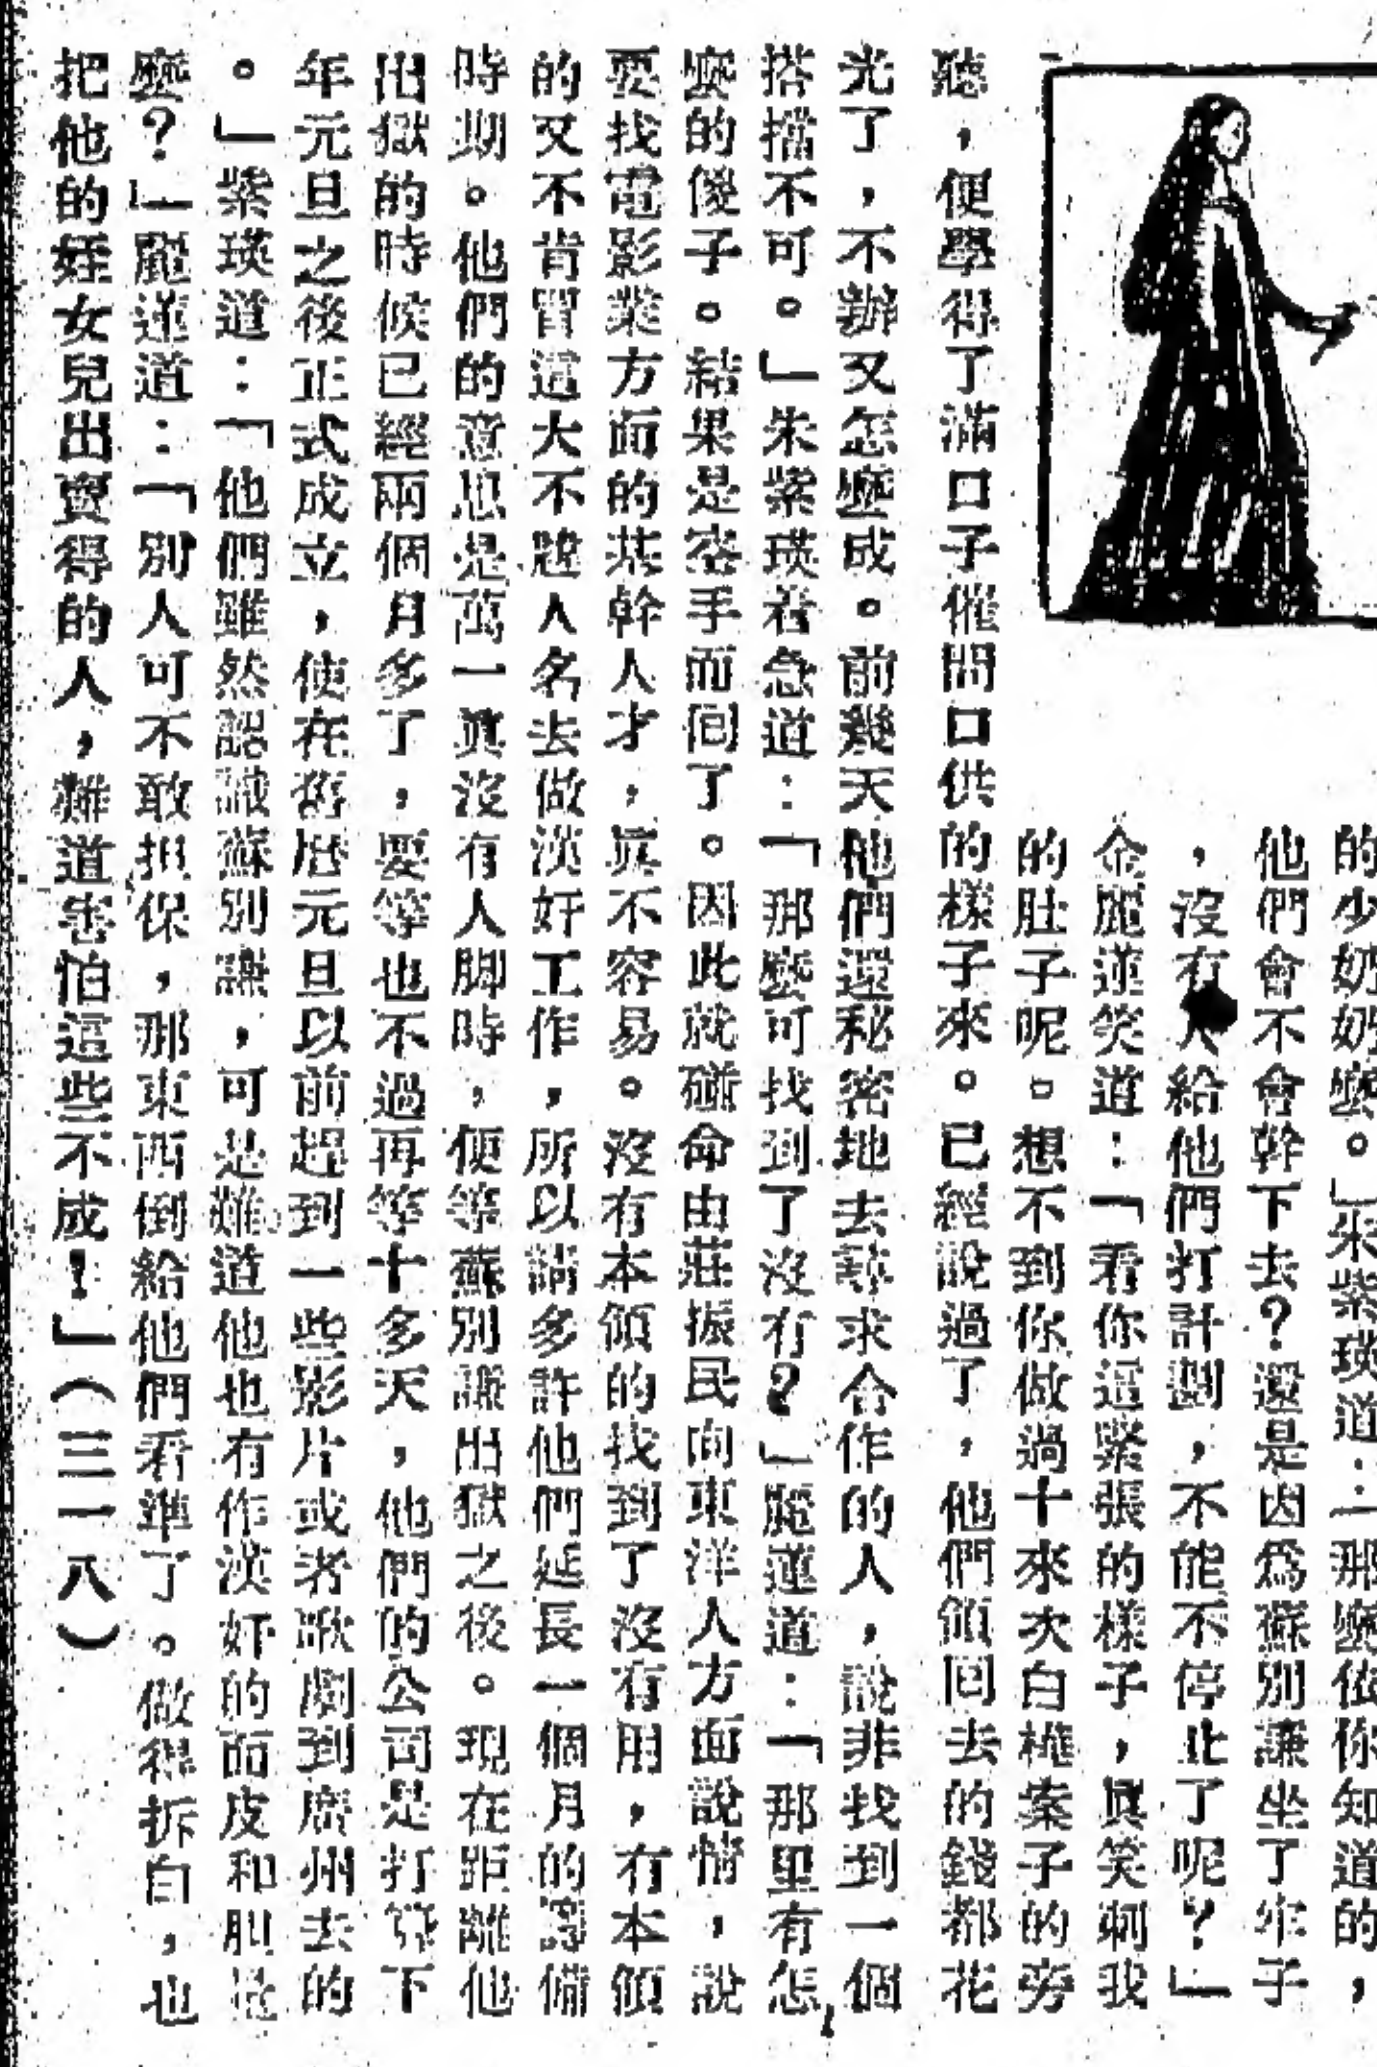 的少奶奶麼。」朱紫瑛道：「那麼依你知道的，
他們會不會幹下去？還是因爲蘇別謙坐了牢子
，沒有人給他們打計劃，不能不停止了呢？」
金麗蓮笑道：「看你這緊張的樣子，眞笑刺我
的肚子呢。想不到你做過十來次白樁案子的旁
聽，便學得了滿口子催問口供的樣子來。已經說過了，他們領回去的錢都花
光了，不辦又怎麼成。前幾天他們還秘密地去尋求合作的人，說非找到一個
搭擋不可。」朱紫瑛着急道：「那麼可找到了沒有？」麗蓮道：「那里有怎
麼的傻子。結果是空手而回了。因此就碰命由莊振民向東洋人方面說情，說
要找電影業方面的基幹人才，眞不容易。沒有本領的找到了沒有用，有本領
的又不肯冒這大不韙人名去做漢奸工作，所以請多許他們延長一個月的籌備
時期。他們的意思是萬一眞沒有人脚時，便等蘇別謙出獄之後。現在距離他
出獄的時候已經兩個月多了，要等也不過再等十多天，他們的公司是打算下
年元旦之後正式成立，使在舊曆元旦以前趕到一些影片或者歌劇到廣州去的
。」紫瑛道：「他們雖然認識蘇別謙，可是難道他也有作漢奸的面皮和胆量
麼？」麗蓮道：「別人可不敢担保，那東西倒給他們看準了。做得拆白，也
把他的姪女兒出賣得的人，難道害怕這些不成！」（三一八）